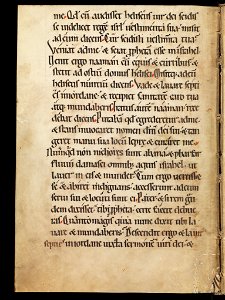 me. Quod cum audisset heliseus vir dei scidis
se videlicet regem isrl vestimenta sua: misit
ad eum dicens. Cur scidisti vestimenta tua?
Veniat ad me & sciat prophetam esse in israhel.
Venit ergo naaman cum equis & curribus &
stetit ad ostium domus helisei. Misitque ad eum
heliseus nuntium dicens. Vade & lavare septi
es in iordane & recipiet sanitatem caro tua
atque mundaberis. Iratus naaman rece
debat dicens. Putabam quod egrederetur ad me
& stans invocaret nomen domini dei sui & tan
geret manu sua locum leprę & curaret me.
Numquid non meliores sunt abana & pharphar
fluvii damasci omnibus aquis israhel ut
laver in eis & munder? Cum ergo vertisset
se & abiret indignans: accesserunt ad eum
servi sui & locuti sunt ei. Pater & si rem gran
dem dixisset tibi propheta: certe facere debue
ras. Quanto magis quia nunc dixit tibi la
vare & mundaberis. Descendit ergo & lavit
septies in iordane iuxta sermonem viri dei &